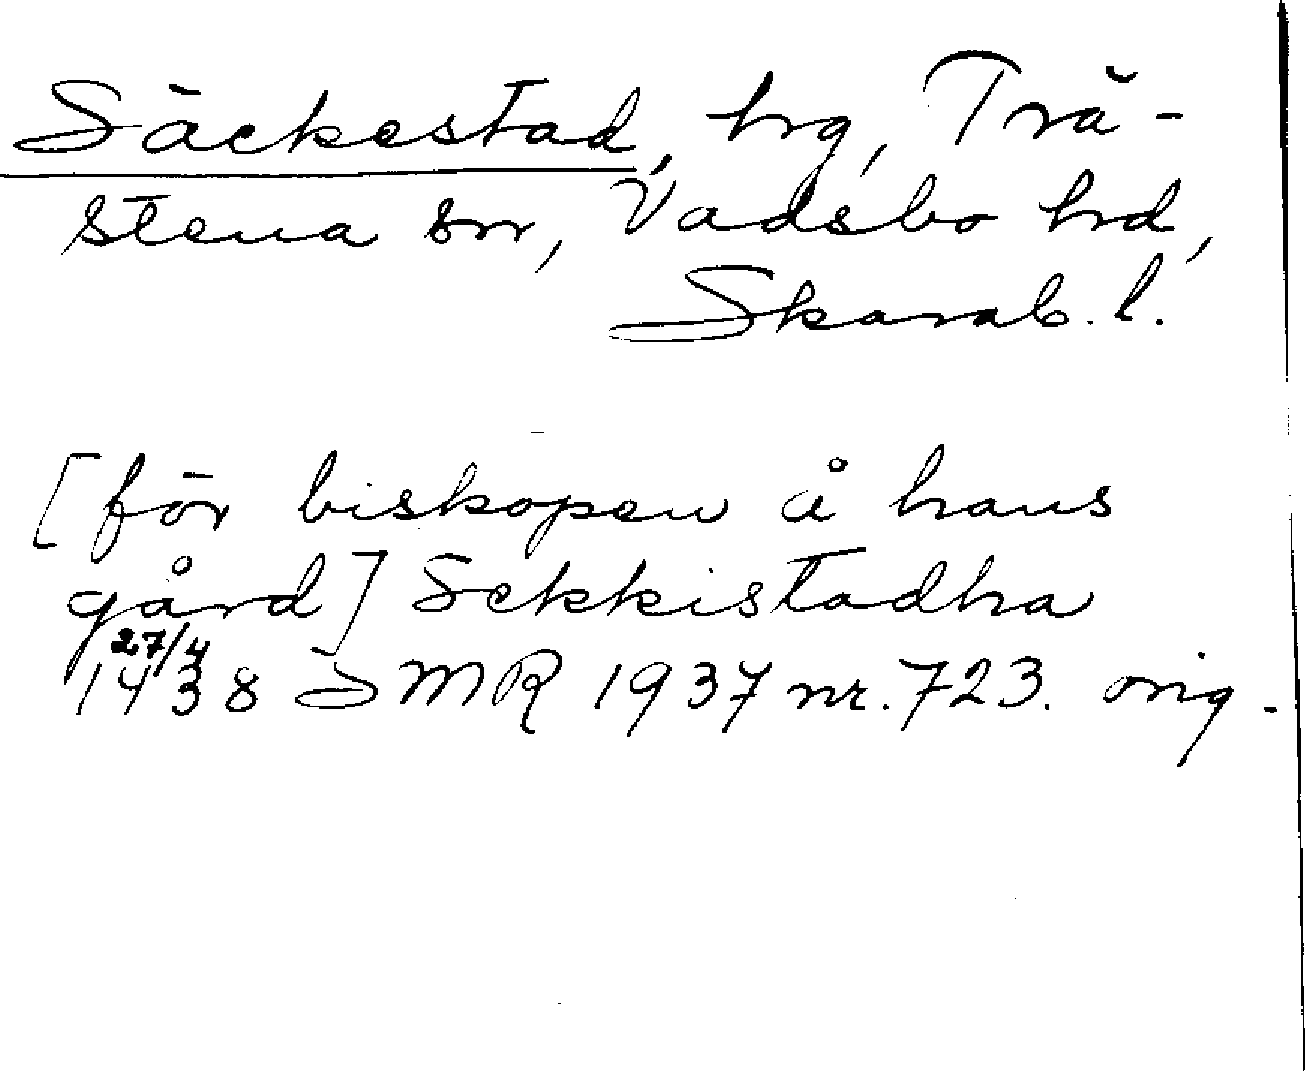 Säckestad, hg, Trä-
stena sn, Vadsbo hd,
Skarab. l.
[för biskopen å hans
gård] Sekkistadha
27/4
1438 SMR 1937 nr. 723. orig.